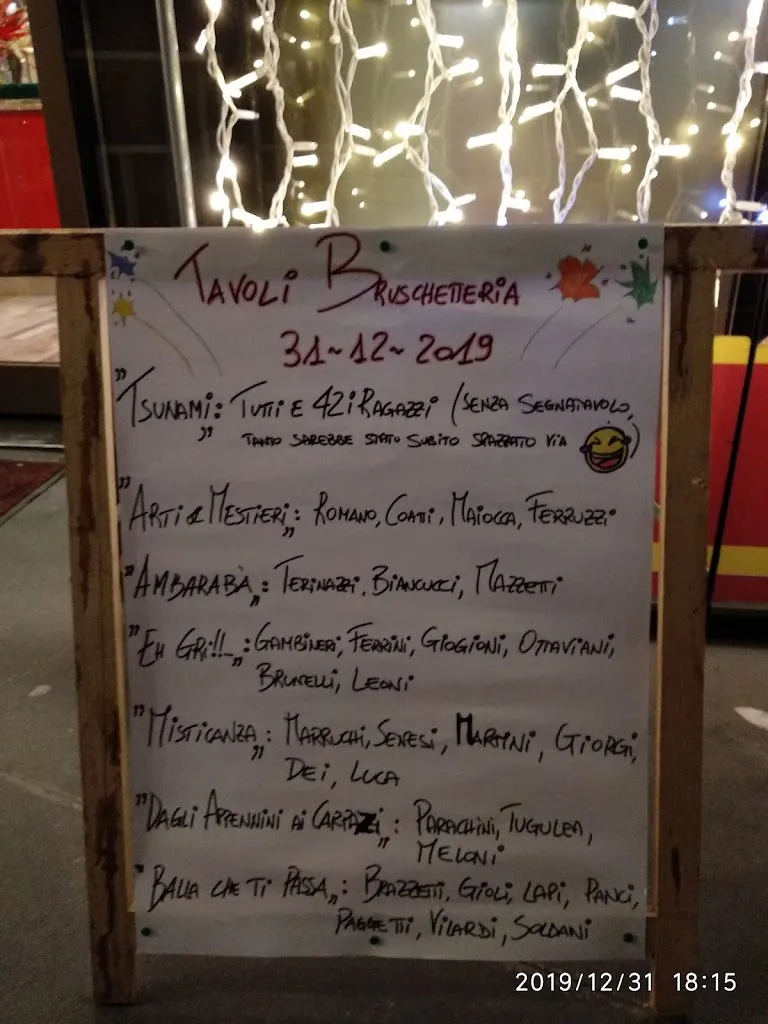 TAVOLI BRUSCHETTERIA
31~12~2019
"TSUNAMI": TUTTI E 42 I RAGAZZI (SENZA SEGNATAVOLO,
TANTO SAREBBE STATO SUBITO SPAZZATO VIA
"ARTI & MESTIERI": ROMANO, COATTI, MAIOCCA, FERRUZZI
"AMBARABÀ": TERINAZZI, BIANCUCCI, MAZZETTI
"EH GRI!!": GAMBINERI, FERRINI, GIOGIONI, OTTAVIANI,
BRUNELLI, LEONI
"MISTICANZA": MARRUCHI, SENESI, MARTINI, GIORGI,
DEI, LUCA
"DAGLI APPENNINI AI CARPAZI": PARACHINI, TUGULEA,
MELONI
"BALLA CHE TI PASSA": BRAZZETTI, GIOLI, LAPI, PANCI,
PAGGETTI, VILARDI, SOLDANI
2019/12/31 18:15